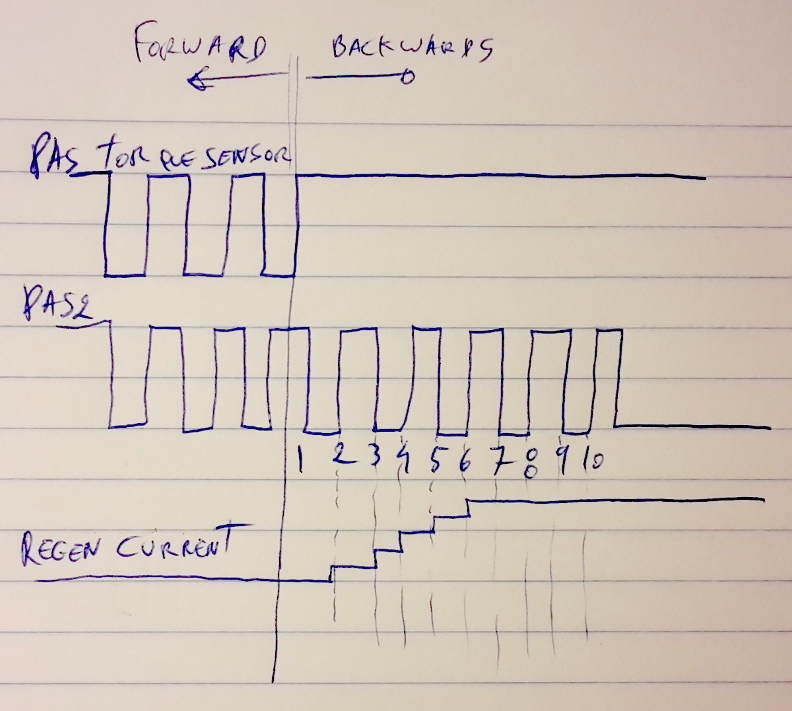 FORWARD BACKWARDS
PAS TORQUE SENSOR
PAS2
1 2 3 4 5 6 7 8 9 10
REGEN CURRENT